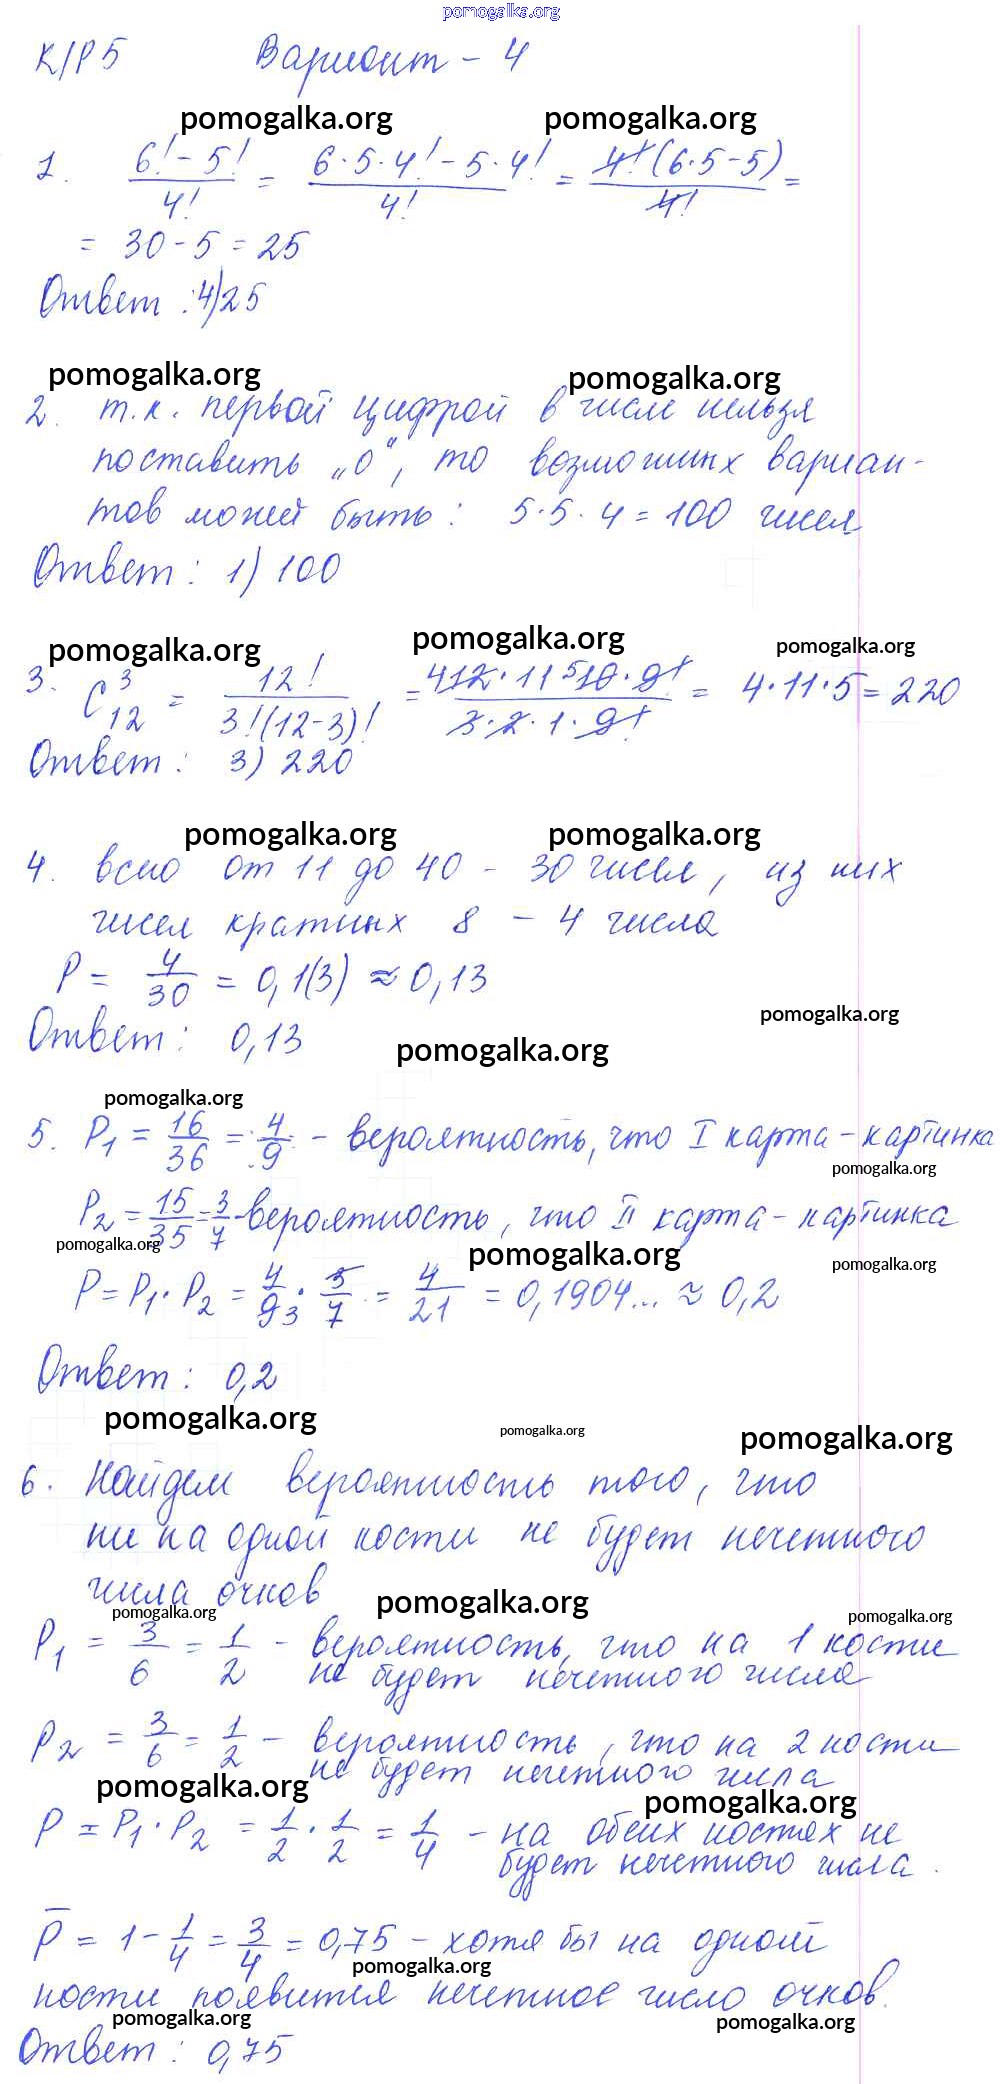 pomogalka.org
К/Р 5 Вариант - 4
pomogalka.org pomogalka.org
1. 6! - 5! / 4! = 6·5·4! - 5·4! / 4! = 4!(6·5-5) / 4! =
= 30 - 5 = 25
Ответ : 4) 25
pomogalka.org pomogalka.org
2. т.к. первой цифрой в числе нельзя
поставить „0", то возможных вариан-
тов может быть: 5·5·4 = 100 чисел
Ответ : 1) 100
pomogalka.org pomogalka.org pomogalka.org
3. C³₁₂ = 12! / 3!(12-3)! = 4 12·11 5 10·9! / 3·2·1·9! = 4·11·5 = 220
Ответ : 3) 220
pomogalka.org pomogalka.org
4. всего от 11 до 40 - 30 чисел, из них
чисел кратных 8 - 4 числа
P = 4/30 = 0,1(3) ≈ 0,13
pomogalka.org
Ответ : 0,13
pomogalka.org
pomogalka.org
5. P₁ = 16/36 = 4/9 - вероятность, что I карта - картинка
pomogalka.org
P₂ = 15/35 = 3/7 - вероятность, что II карта - картинка
pomogalka.org pomogalka.org pomogalka.org
P = P₁·P₂ = 4/9 3 · 3/7 = 4/21 = 0,1904... ≈ 0,2
Ответ : 0,2
pomogalka.org pomogalka.org pomogalka.org
6. Найдем вероятность того, что
ни на одной кости не будет нечетного
числа очков
pomogalka.org pomogalka.org pomogalka.org
P₁ = 3/6 = 1/2 - вероятность, что на 1 кости
не будет нечетного числа
P₂ = 3/6 = 1/2 - вероятность, что на 2 кости
не будет нечетного числа
pomogalka.org pomogalka.org
P = P₁·P₂ = 1/2 · 1/2 = 1/4 - на обеих костях не
будет нечетного числа.
P̅ = 1 - 1/4 = 3/4 = 0,75 - хотя бы на одной
pomogalka.org
кости появится нечетное число очков.
pomogalka.org pomogalka.org
Ответ : 0,75